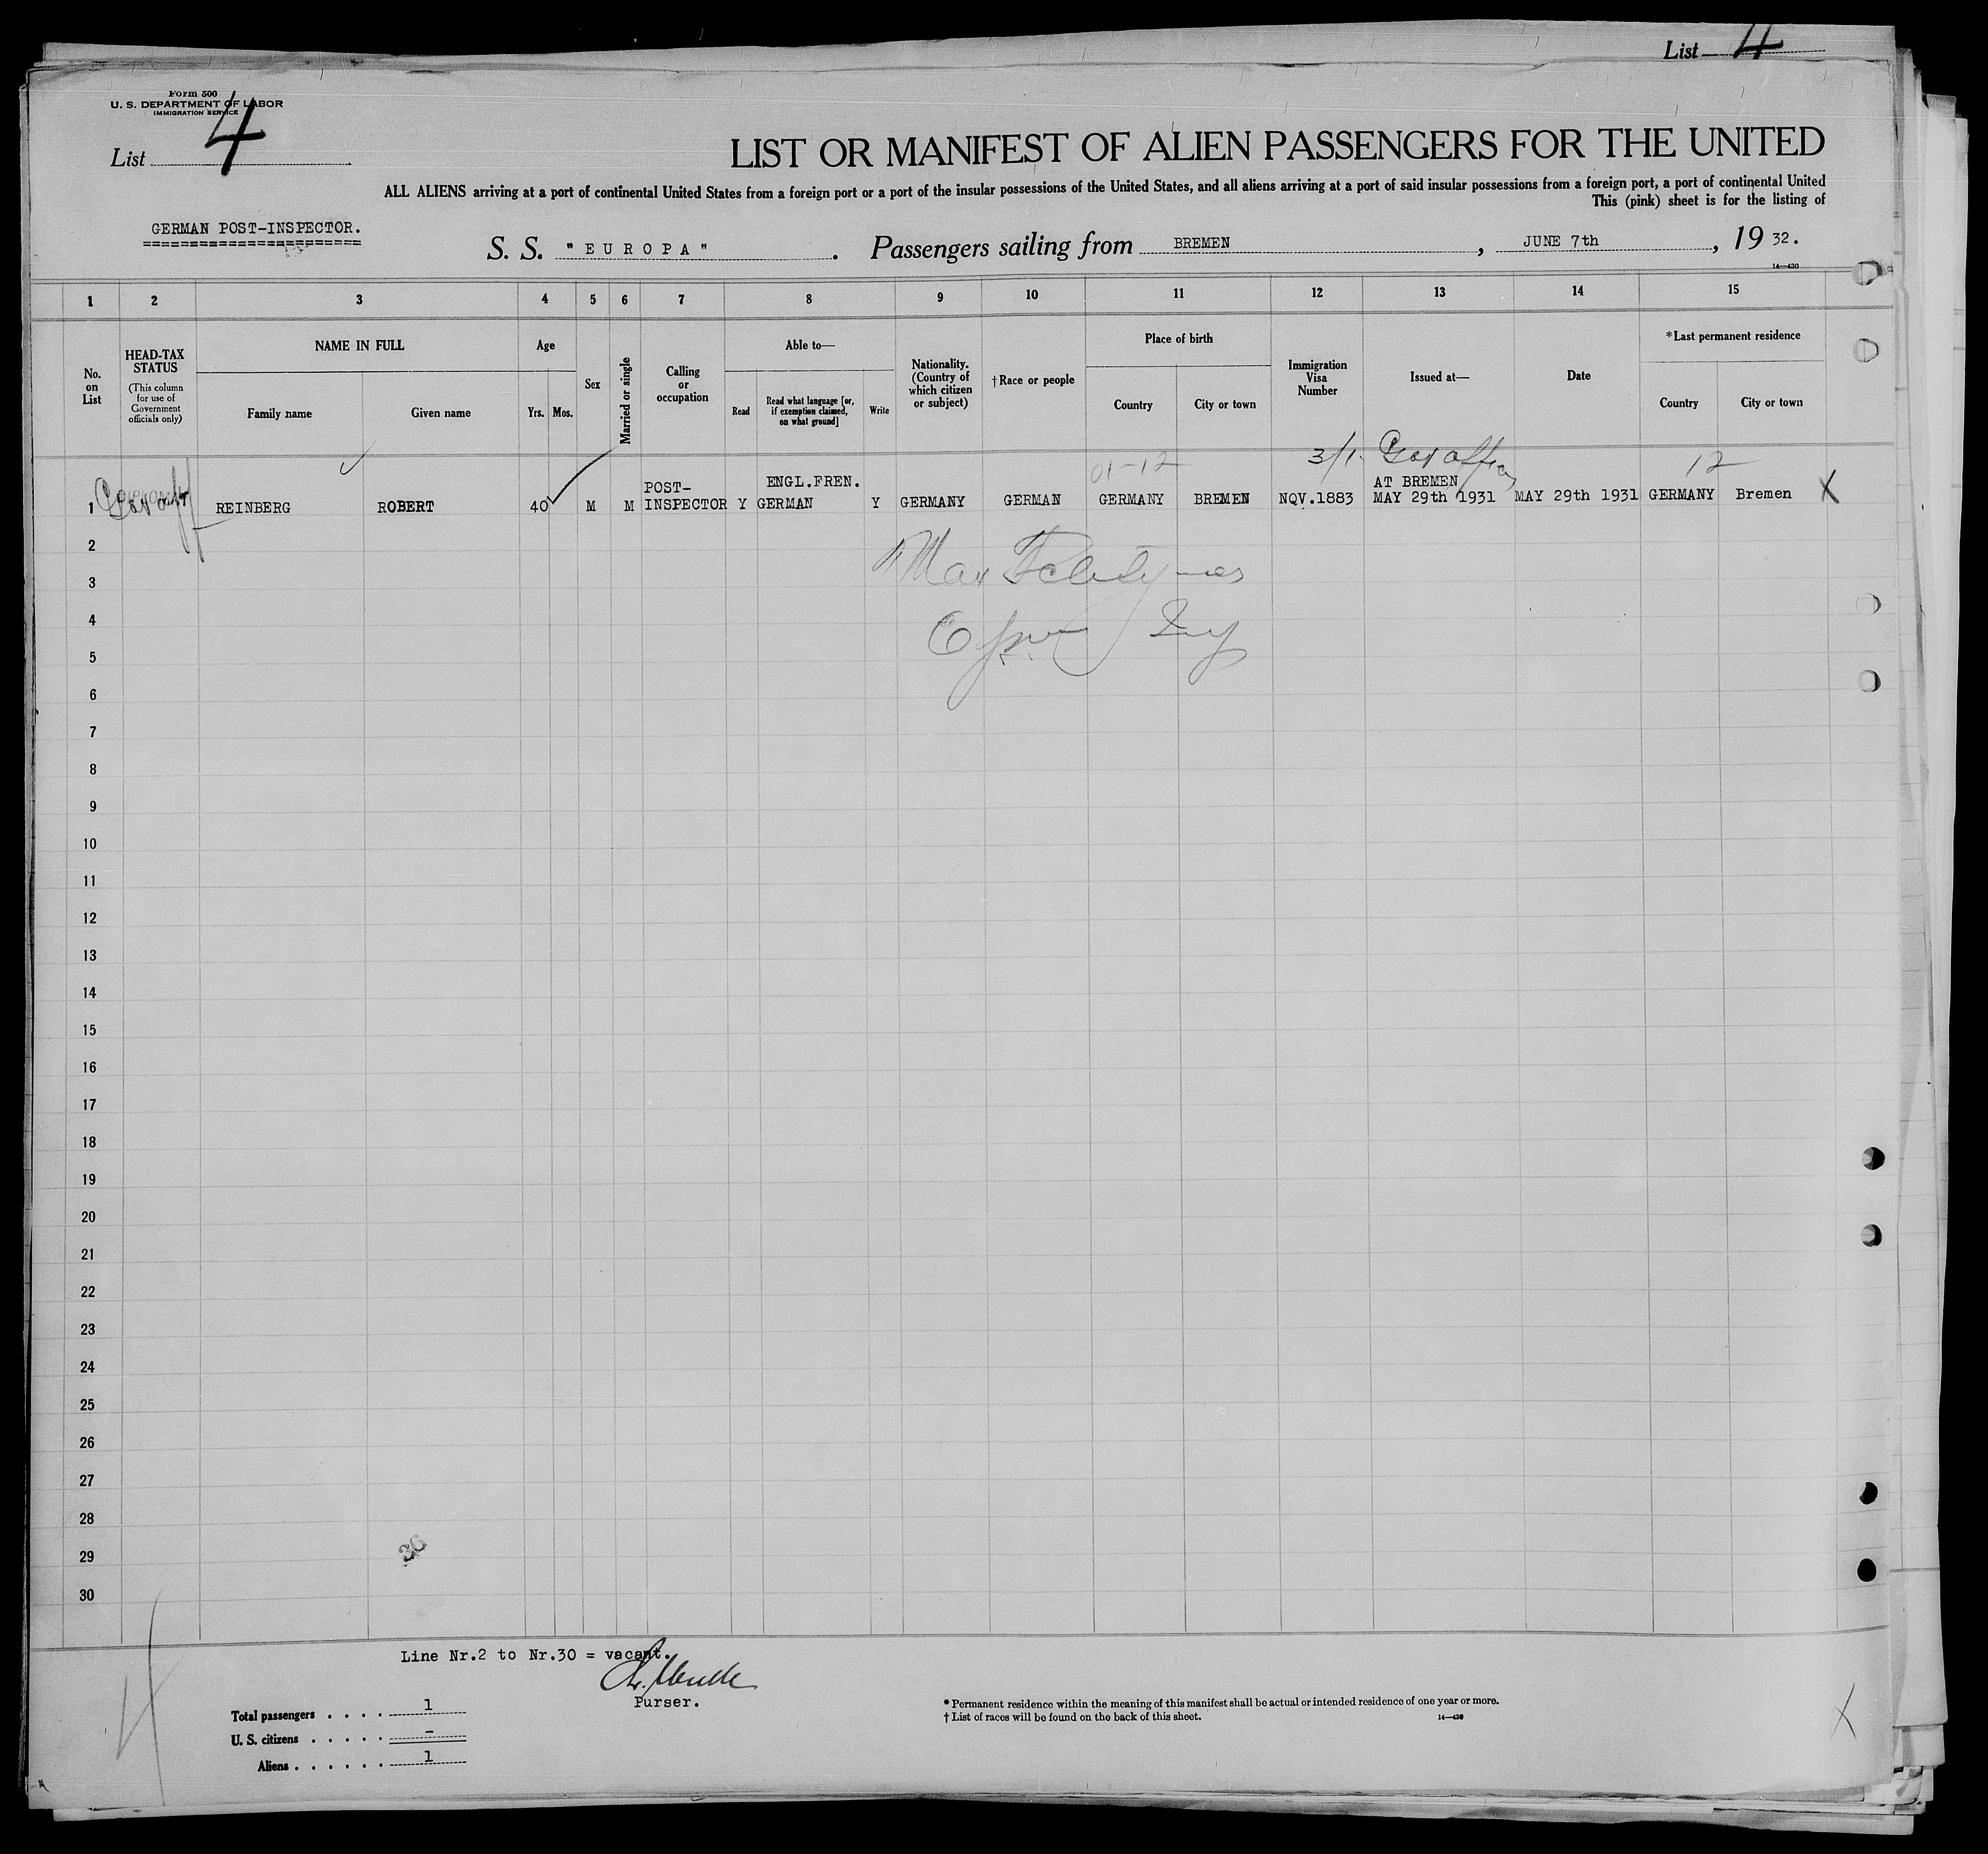 List 4
Form 500
U. S. DEPARTMENT OF LABOR
IMMIGRATION SERVICE
List 4
LIST OR MANIFEST OF ALIEN PASSENGERS FOR THE UNITED
ALL ALIENS arriving at a port of continental United States from a foreign port or a port of the insular possessions of the United States, and all aliens arriving at a port of said insular possessions from a foreign port, a port of continental United
This (pink) sheet is for the listing of
GERMAN POST-INSPECTOR.
S. S. "EUROPA". Passengers sailing from BREMEN, JUNE 7th, 1932.
14—430
1 2 3 4 5 6 7 8 9 10 11 12 13 14 15
No. on List
HEAD-TAX STATUS
(This column for use of Government officials only)
NAME IN FULL
Family name Given name
Age
Yrs. Mos.
Sex
Married or single
Calling or occupation
Able to—
Read
Read what language [or, if exemption claimed, on what ground]
Write
Nationality. (Country of which citizen or subject)
†Race or people
Place of birth
Country City or town
Immigration Visa Number
Issued at—
Date
*Last permanent residence
Country City or town
01-12 3/1. 12
1 REINBERG ROBERT 40 M M POST-INSPECTOR Y ENGL.FREN. GERMAN Y GERMANY GERMAN GERMANY BREMEN NOV.1883 AT BREMEN MAY 29th 1931 MAY 29th 1931 GERMANY Bremen X
2
3
4
5
6
7
8
9
10
11
12
13
14
15
16
17
18
19
20
21
22
23
24
25
26
27
28
29
30
Line Nr.2 to Nr.30 = vacant.
Purser.
Total passengers . . . . 1
U. S. citizens . . . . . -
Aliens . . . . . . 1
* Permanent residence within the meaning of this manifest shall be actual or intended residence of one year or more.
† List of races will be found on the back of this sheet. 14—430
X